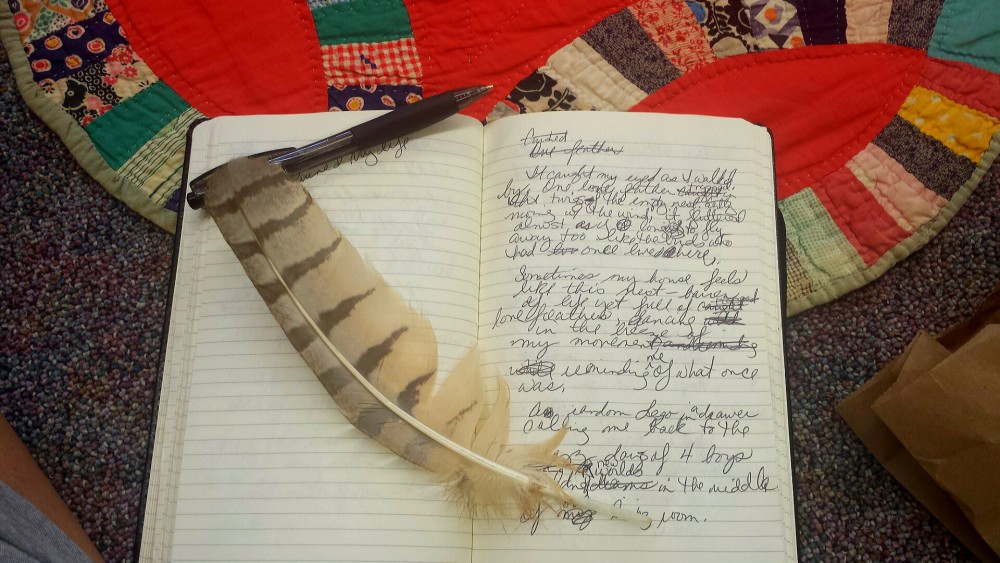 my life
One feather
It caught my eye as I walked
by. One lone feather
the twigs of the empty nest
in the wind. It fluttered
almost as if it longed to fly
away too like the birds who
had once lived here.
Sometimes my house feels
like this nest -
of life yet full of
lone feathers dancing
in the breeze of
my movement
reminding me of what once
was.
A random Lego in a drawer
calling me back to the
days of 4 boys
new worlds
dreams in the middle
of room.